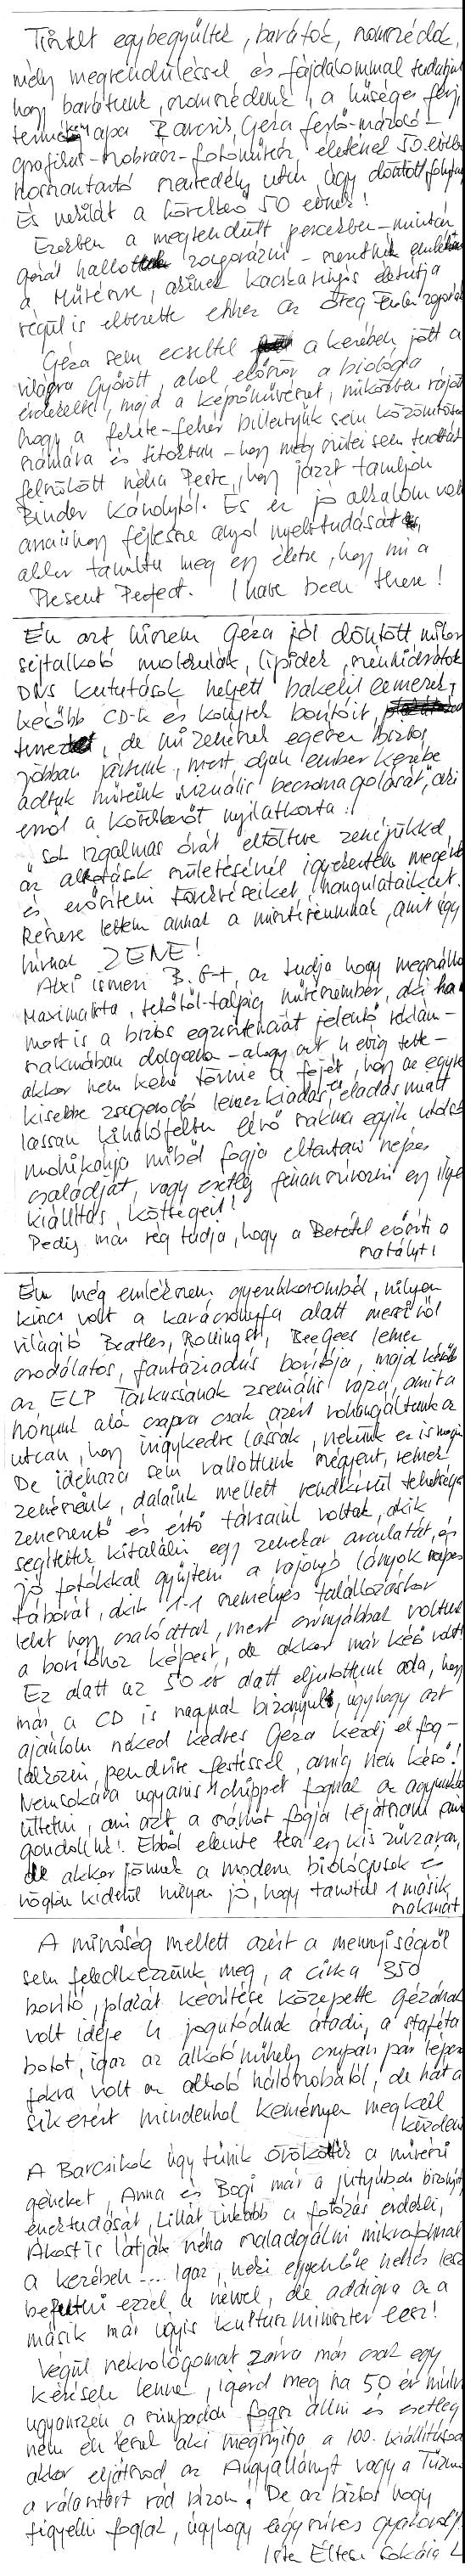 Tisztelt egybegyűltek, barátok, szomszédok,
mély megrendüléssel és fájdalommal tudatjuk
hogy barátunk, szomszédunk, a hűséges férj,
termékeny apa Barcsik Géza festő-mázoló-
grafikus-szobrász-fotóművész életének 50. évében
hosszantartó szenvedély után úgy döntött folytatja
És nekilát a következő 50 évnek!
Ezekben a megrendült percekben – miután
Gézát hallottuk zongorázni – mentünk emlékezni
a Művészre, akinek kacskaringós életútja
végül is elvezette ehhez az öreg
Géza sem ecsettel a kezében jött a
világra Győrött, ahol először a biológia
érdekelte, majd a képzőművészet, miközben rájött
hogy a fekete-fehér billentyűk sem közömbösek
számára és titokban – hogy még szülei sem tudták
felszökött néha Pestre, hogy jazzt tanuljon
Binder Károlytól. És ez jó alkalom volt
arra is hogy fejlessze angol nyelvtudását is,
akkor tanulta meg egy életre, hogy mi a
Present Perfect. I have been there!
Én azt hiszem Géza jól döntött mikor
sejtalkotó molekulák, lipidek, szénhidrátok
DNS kutatások helyett bakelit lemezek,
később CD-k és könyvek borítóit,
tervezte, de mi zenészek egészen biztos
jobban jártunk, mert olyan ember kezébe
adtuk műveink vizuális becsomagolását, aki
erről a következőt nyilatkozta:
"Sok izgalmas órát eltöltve zenéjükkel,
az alkotások születésénél igyekeztem megérteni
és erősíteni törekvéseiket, hangulataikat.
Részese lettem annak a misztériumnak, amit úgy
hívnak ZENE!
Aki ismeri B. G-t, az tudja hogy megszállott
Maximalista, tetőtől-talpig művészember, aki ha
most is a biztos egzisztenciát jelentő reklám-
szakmában dolgozna – ahogy azt is évig tette –
akkor nem kéne törnie a fejét, hogy az egyre
kisebbre zsugorodó lemezkiadás, eladás miatt
lassan kihalófélben lévő szakma egyik utolsó
mohikánja miből fogja eltartani népes
családját, vagy esetleg finanszírozni egy ilyen
kiállítás költségeit!
Pedig már rég tudja, hogy a Betétel erősíti a
matályt!
Én még emlékszem gyerekkoromból, milyen
kincs volt a karácsonyfa alatt messziről
világító Beatles, Rollingst, BeeGees lemez
csodálatos, fantáziadús borítója, majd később
az ELP Tarkusának zseniális rajza, amit a
hónunk alá csapva csak azért rohangáltunk az
utcán, hogy irigykedve lássák, nekünk ez is megvan
De idehaza sem vallottunk szégyent, remek
zenészeink, dalaink mellett rendkívül tehetséges
zeneszerető és értő társaink voltak, akik
segítettek kitalálni egy zenekar arculatát, és
jó fotókkal gyűjteni a rajongó lányok népes
táborát, akik 1-1 személyes találkozáskor
lehet hogy csalódtak, mert csúnyábbak voltunk
a borítóhoz képest, de akkor már késő volt!
Ez alatt az 50 év alatt eljutottunk oda, hogy
már a CD is nagynak bizonyult, úgyhogy azt
ajánlom néked kedves Géza kezdj el fog-
lalkozni pendrive festéssel, amíg nem késő!
Nemsokára ugyanis chippet fognak az agyunkba
ültetni, ami azt a számot fogja lejátszani amire
gondolunk! Ebből eleinte lesz egy kis zűrzavar,
de akkor jönnek a modern biológusok és
rögtön kiderül milyen jó, hogy tanultál 1 másik
szakmát.
A minőség mellett azért a mennyiségről
sem feledkezzünk meg, a cirka 350
borító, plakát készítése közepette Gézának
volt ideje is jogutódnak átadni, a staféta
botot, igaz az alkotóműhely csupán pár lépés
fokra volt az alkotó hálószobától, de hát a
sikerért mindenhol keményen meg kell
küzdeni
A Barcsikok úgy tűnik örökölték a művészi
géneket, Anna és Bogi már a jutyúban bizonyít
énektudását, Lillát inkább a fotózás érdekli,
Ákost is látják néha szaladgálni mikrofonnal
a kezében... Igaz, neki egyenlőre nehéz lesz
befutni ezzel a névvel, de addigra az a
másik már úgyis kulturminiszter lesz!
Végül nekrológomat zárva már csak egy
kérésem lenne, ígérd meg ha 50 év múlva
ugyanezen a színpadon fogsz állni és esetleg
nem én leszek aki megnyitja a 100. kiállításod
akkor eljátszod az Angyallányt vagy a Tűzm
a választást rád bízom. De az biztos hogy
figyelni foglak, úgyhogy légy szíves gyakorolj!
Isten Éltessen Sokáig